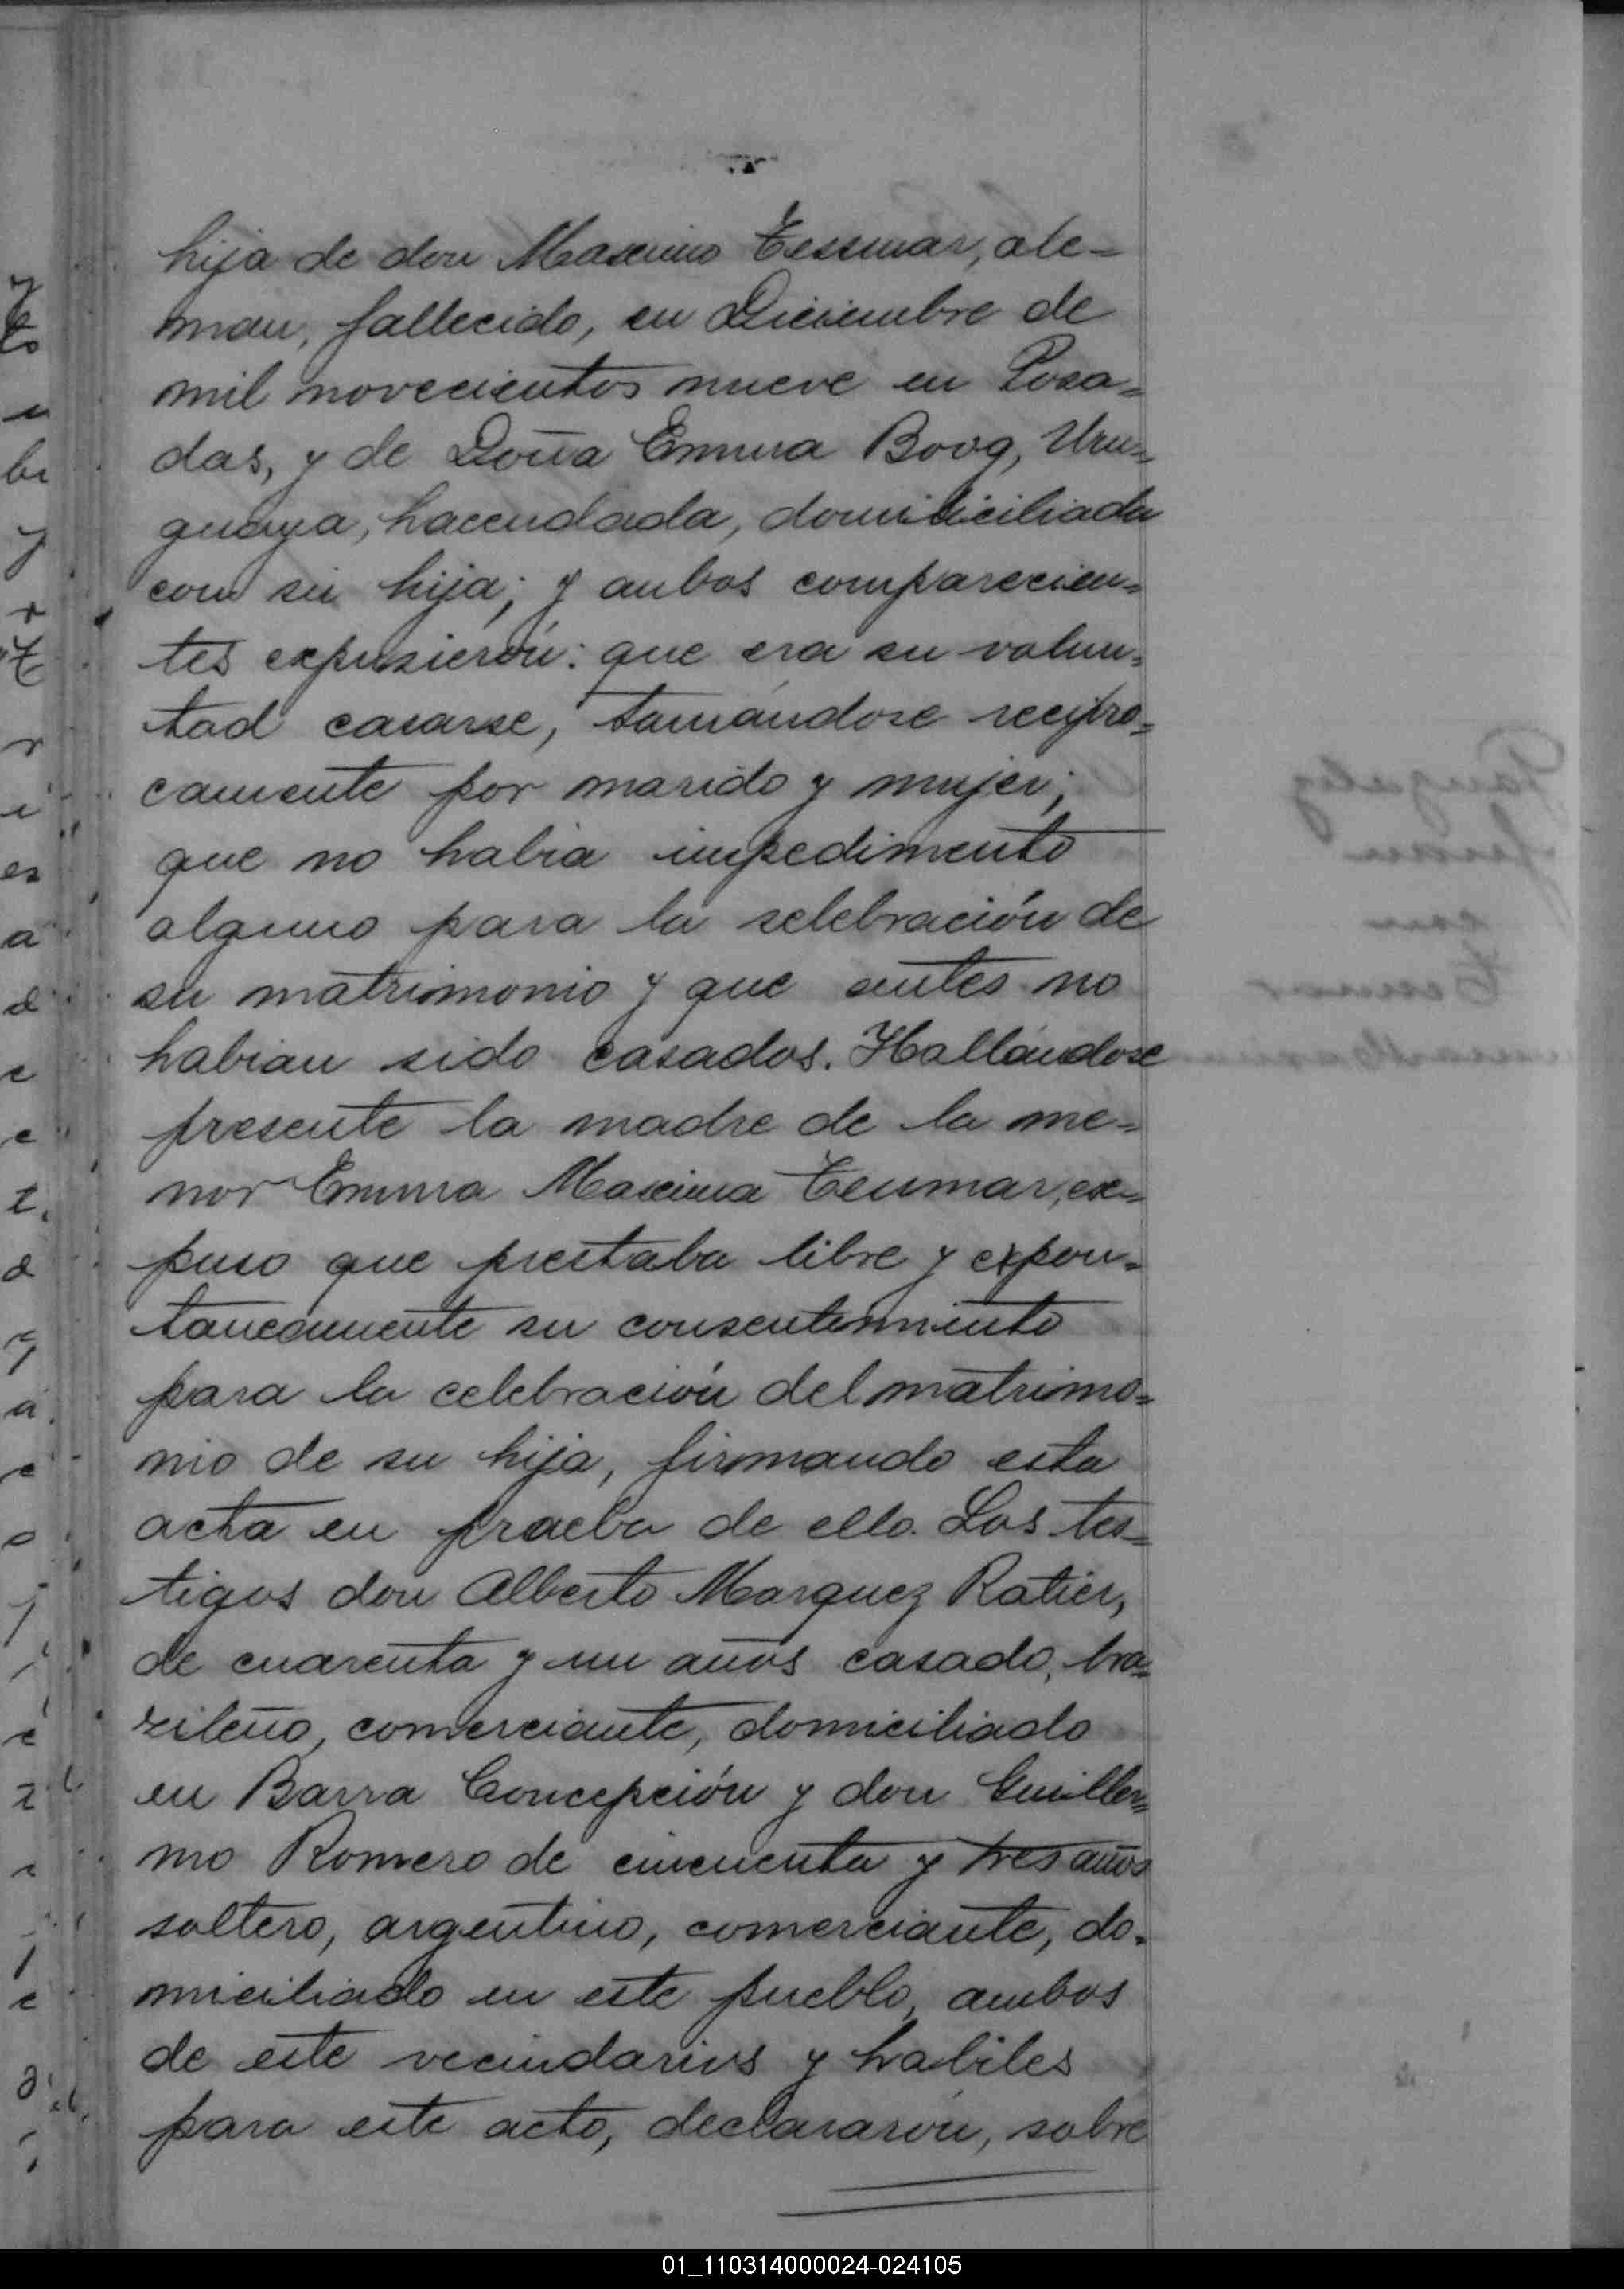 hija de don Maximo Tessmar, ale-
man, fallecido, en Diciembre de
mil novecientos nueve en Posa=
das, y de Doña Emma Boog, Uru=
guaya, hacendada, domiliciliada
con su hija; y anbos comparecien=
tes expusierón: que era su volun=
tad casarse, tamándose recipro=
camente por marido y mujer;
que no habia impedimento
alguno para la selebración de
su matrimonio y que antes no
habian sido casados. Hallándose
presente la madre de la me=
nor Emma Maxima Tessmar, ex=
puso que prestaba libre y expon=
taneamente su consentimiento
para la celebración del matrimo=
nio de su hija, firmando esta
acta en prueba de ello. Los tes=
tigos don Alberto Marquez Ratier,
de cuarenta y un años casado, bra=
zileño, comerciante, domiciliado
en Barra Concepción y don Guiller=
mo Romero de cincuenta y tres años
soltero, argentino, comerciante, do=
miciliado en este pueblo, ambos
de este vecindarios y habiles
para este acto, declararón, sobre
01_110314000024-024105